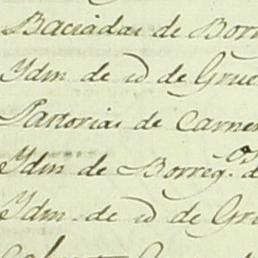 Baciadas de Borr
Ydm de id de Grue
Partorias de Carne
Ydm de Borreg.os d
Ydm de id de Gru